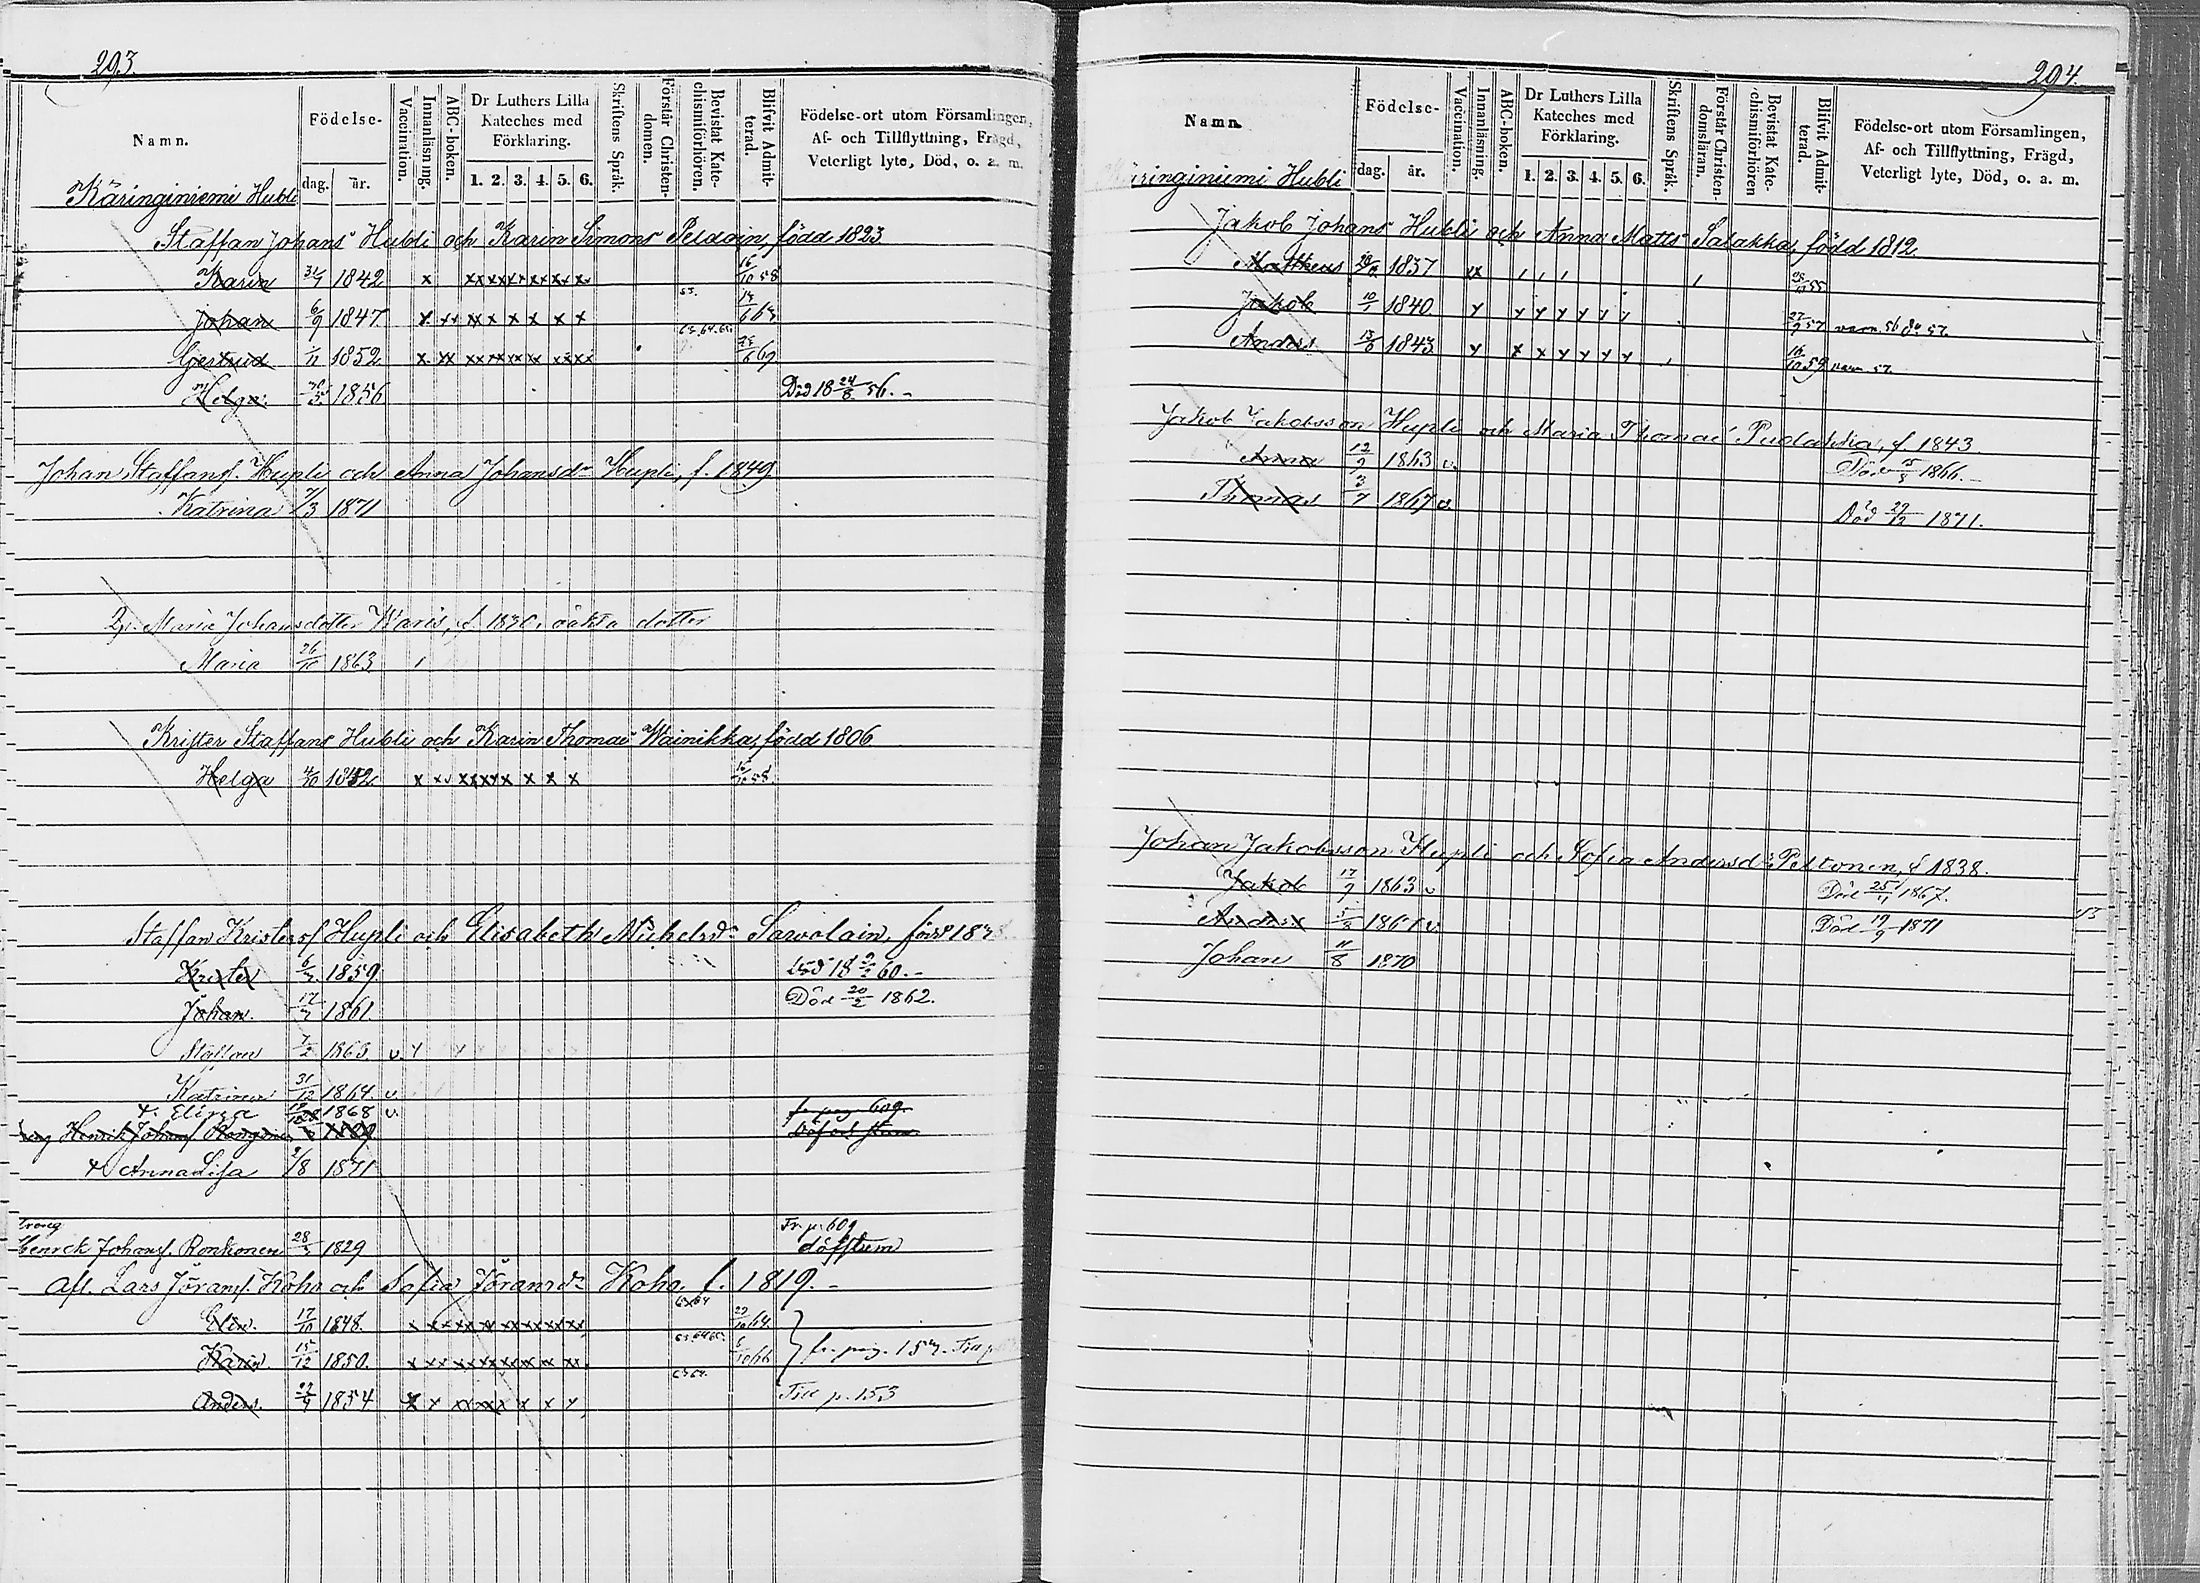 293.
Namn.
Födelse-
dag. år.
Vaccination.
Innanläsning.
ABC-boken.
Dr Luthers Lilla Kateches med Förklaring.
1. 2. 3. 4. 5. 6.
Skriftens Språk.
Förstår Christen-domen.
Bevistat Kate-chismiförhören.
Blifvit Admit-terad.
Födelse-ort utom Församlingen,
Af- och Tillflyttning, Frägd,
Veterligt lyte, Död, o. a. m.
Käringiniemi Hubli
Staffan Johans Hubli och Karin Simons Peldoin, född 1823
Karin 31/7 1842 x xxxxxxxxxx 16/10 58
Johan 6/9 1847 x xx xx x x x x x 53.
Gertrud 1/11 1852 x xx xxxxxxx xxxx 63.64.65. /6 69
Helga 1856 Död 18 24/8 56.
Johan Staffansf. Hupli och Anna Johansdr Hupli, f. 1849
Katrina 7/3 1871
Maria Johansdotter Waris, f. 1830, oäkta dotter
Maria 26/10 1863
Krister Staffans Hubli och Karin Thomas Wainikka, född 1806
Helga 4/10 1842 x xx xxxxx x x x
Staffan Kristersf Hupli och Elisabeth Michelsdr Sarvolain, född 183
Krister 1859 60.
Johan. 17/ 1861. Död 20/2 1862.
Staffan 7/2 1863. v.
Katrina 31/12 1864 v
Elisa 1868 v. fr. pag. 609.
Henrik Johansf Döf och stum
Anna Lisa 2/8 1871
Henrik Johansf. Ronkonen 28/3 1829 Fr. p. 609 döfstum
Afl. Lars Jöransf. Koho och Sofia Jöransdr Koho f. 1819.
Elin. 17/10 1848. x xxxxxxxxxxxx 63 64 /10 64.
Karin. 15/12 1850. x xxxxxxxxxxx 63 64 65. /10 66 fr. pag. 153.
Anders. /9 1854 x x xxxxx x x x 63 64. Till p. 153
294.
Namn.
Födelse-
dag. år.
Vaccination.
Innanläsning.
ABC-boken.
Dr Luthers Lilla Kateches med Förklaring.
1. 2. 3. 4. 5. 6.
Skriftens Språk.
Förstår Christen-domsläran.
Bevistat Kate-chismiförhören
Blifvit Admit-terad.
Födelse-ort utom Församlingen,
Af- och Tillflyttning, Frägd,
Veterligt lyte, Död, o. a. m.
Käringiniemi Hubli
Jakob Johans Hubli och Anna Matts Salakka, född 1812.
Mattheus 1837 xx 55
Jakob 10/1 1840. 27/9 57 varn. 56 do 57
Anders 1843. 16/10 59 varn. 57
Jakob Jakobsson Hupli och Maria Thomas Pudakka, f. 1843.
Anna 12/9 1863 v. Död 1866.
Thomas 3/7 1867 v. Död 27/12 1871.
Johan Jakobsson Hupli och Sofia Andersdr Peltonen, f 1838.
Jakob 17/9 1863 v Död 25/11 1867.
Anders 186 v Död 19/9 1871
Johan 11/8 1870